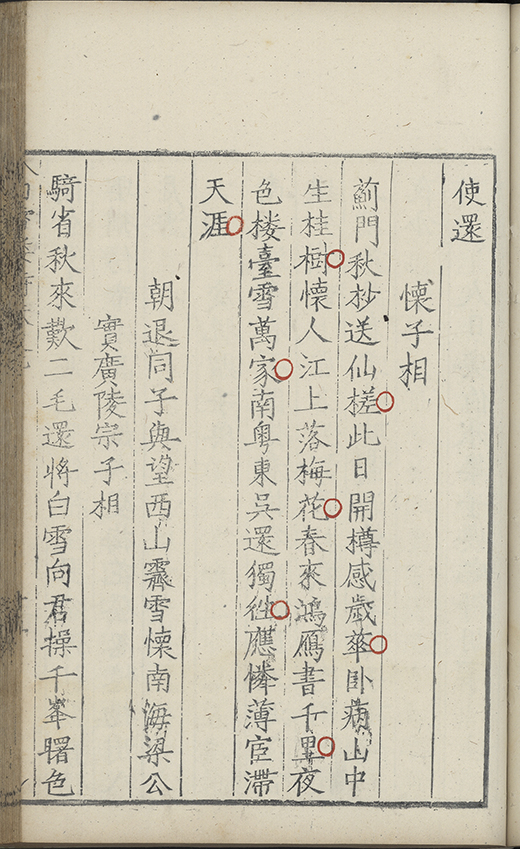 使還
懷子相
薊門秋杪送仙槎此日開樽感歲華臥病山中
生桂樹懷人江上落梅花春來鴻鴈書千里夜
色楼臺雪萬家南粤東吳還獨徃應憐薄宦滯
天涯
朝退同子與望西山霽雪懷南海梁公
實廣陵宗子相
騎省秋來歎二毛還將白雪向君操千峯曙色